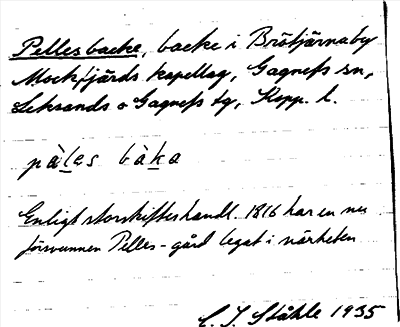 Pellesbacke, backe i Brötjärnaby
Mockfjärds kapellag, Gagnefs sn,
Leksands o Gagnefs tg, Kopp. l.
pàles bàka
Enligt storskifteshandl. 1816 har en nu
försvunnen Pelles-gård legat i närheten
C. I. Ståhle 1935